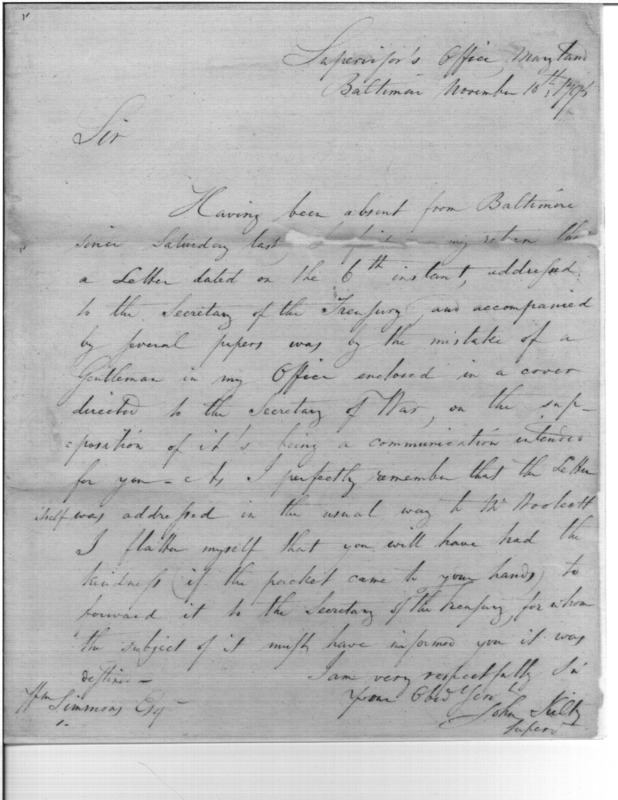 Supervisor's Office, Maryland
Baltimore November 10th, 
Sir
Having been absent from Baltimore
since Saturday last, my return that
a Letter dated on the 6th instant, addressed
to the Secretary of the Treasury, and accompanied
by several papers was by the mistake of a
Gentleman in my Office enclosed in a cover
directed to the Secretary of War, on the sup-
position of it's being a communication intended
for you – As I perfectly remember that the Letter
itself was addressed in the usual way to Mr Woolcott
I flatter myself that you will have had the
kindness (if the packet came to your hands) to
forward it to the Secretary of the Treasury, for whom
the subject of it must have informed you it was
destined –
I am very respectfully Sir
Your Obed Serv
Wm Simmons Esq
John Kilty
Superv